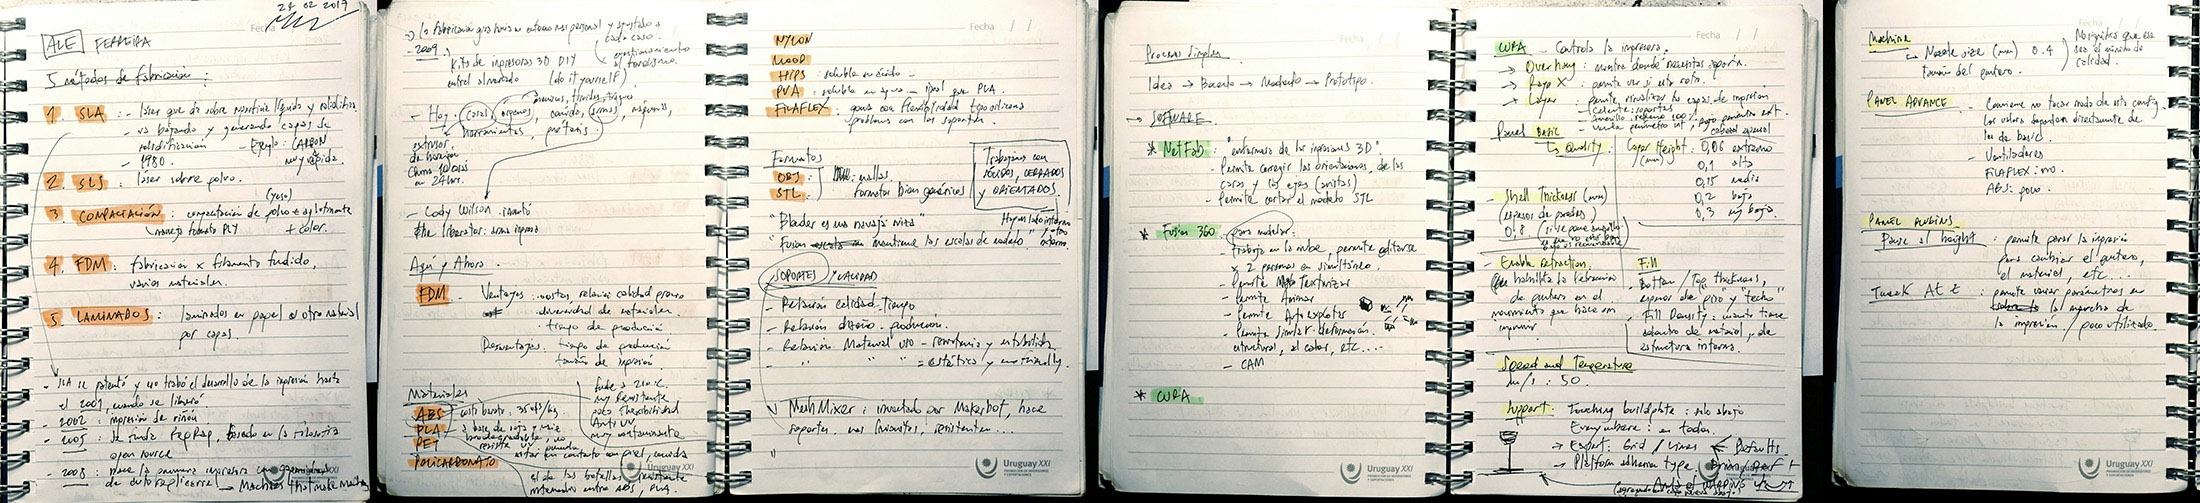 28 02 2017
Fecha
ALE FERREIRA
5 métodos de fabricación:
1. SLA : - láser que da sobre líquida y solidifica
- va bajando y generando capas de
solidificación - Ejemplo: CARBON
- 1980 muy rápida
2. SLS : láser sobre polvo.
(yeso)
3. COMPACTACIÓN : compactación de polvo + aglutinante
manejo formato PLY + color.
4. FDM : fabricación x filamento fundido,
varios materiales.
5. LAMINADOS : laminados en papel u otro material
por capas.
- SLA se patentó y no trabó el desarrollo de la impresión hasta
el 2009, cuando se liberó
- 2002 : impresión de riñón
- 2005 : se funda RepRap, basado en la filosofía
open source
- 2008 : nace la primera impresora con
de autoreplicarse → Machines that make machines
→ la fabricación gira hacia un entorno más personal y ajustado a
cada caso.
- 2009 : Kits de impresoras 3D DIY
entró al mercado (do it yourself)
cuestionamiento
al fordismo.
- Hoy : casas, órganos, comida, armas, máquinas,
herramientas, prótesis
extrusor
de hormigón
China 10 casas
en 24 hrs.
- Cody Wilson inventó
the liberator: arma impresa
Aquí y Ahora
FDM Ventajas : costos, relación calidad precio
diversidad de materiales.
tiempo de producción
Desventajas : tiempo de producción
tamaño de impresión.
Materiales
ABS : costo barato, 35 u$s/kg.
PLA : a base de soja y maíz
biodegradable, no
PET resiste UV, puede
estar en contacto con piel, comida
POLICARBONATO
funde a 210°C
muy resistente
poca flexibilidad
Anti UV
muy contaminante
el de las botellas, resistente
intermedio entre ABS, PLA.
Uruguay XXI
PROMOCIÓN DE INVERSIONES
Y EXPORTACIONES
Fecha
NYLON
WOOD
HIPS : soluble en ácido -
PVA : soluble en agua - igual que PLA.
FILAFLEX : goma con flexibilidad tipo silicona
problemas con los soportes.
Formatos
OBJ : mallas.
STL : formatos bien genéricos
Trabajamos con
SÓLIDOS, CERRADOS
y ORIENTADOS.
Hay un lado interno
y otro externo.
"Blender es una navaja suiza"
"Fusion mantiene las escalas de modelo"
SOPORTES y CALIDAD
- Relación calidad-tiempo
- Relación diseño-producción.
- Relación Material uso - resistencia y estabilidad.
- " " " = estético y eco friendly.
MeshMixer : inventado por Makerbot, hace
soportes, más livianitos, resistentes...
Uruguay XXI
PROMOCIÓN DE INVERSIONES
Y EXPORTACIONES
Fecha
Proceso simple:
Idea → Boceto → Modelo → Prototipo.
→ SOFTWARE
* NetFab : "enfermera de las impresiones 3D".
- Permite corregir las orientaciones, de las
caras y los ejes (aristas)
- Permite cortar el modelo STL
* Fusion 360 para modelar:
- trabaja en la nube, permite editarse
x 2 personas en simultáneo.
- Permite Texturizar
- Permite Animar
- Permite Autoexplotar
- Permite simular deformación
estructural, al calor, etc...
- CAM
* CURA
Uruguay XXI
PROMOCIÓN DE INVERSIONES
Y EXPORTACIONES
Fecha
CURA - Controla la impresora.
→ Overhang : muestra donde necesitas soporte.
→ Rayo X : permite ver si está roto.
→ Layer : permite visualizar las capas de impresión
- Celeste: soportes
- amarillo: relleno 100%
- verde perímetro int, rojo perímetro ext.
Panel BASIC
↳ Quality : Layer Height : 0,06 extremo
(mm) 0,1 alta
0,15 media
0,2 baja
0,3 muy baja.
- Shell Thickness (mm)
(espesor de paredes)
0,8
- Enable Retraction
habilita la retracción
de puntero en el
movimiento que hace en
imprimir
Fill
- Bottom / Top thickness,
espesor de "piso" y "techo"
- Fill Density : cuánto tiene
adentro de material, de
estructura interna.
- Speed and Temperature
m/s : 50.
Support : Touching buildplate : solo abajo
Everywhere : en todos.
→ Expert : Grid / Lines ← Defaults
- Platform adhesion type
Uruguay XXI
PROMOCIÓN DE INVERSIONES
Y EXPORTACIONES
Machine
↳ Nozzle size (mm) 0.4
tamaño del puntero.
No significa que ese
sea el mínimo de
calidad.
PANEL ADVANCE - Conviene no tocar nada de esta config.
los valores dependen directamente de
los de basic.
- Ventiladores
FILAFLEX : no.
ABS : poco.
PANEL PLUGINS
Pause at height : permite parar la impresión
para cambiar el puntero,
el material, etc...
Tweak At Z : permite variar parámetros en
la marcha de
la impresión / poco utilizado.
Uruguay XXI
PROMOCIÓN DE INVERSIONES
Y EXPORTACIONES